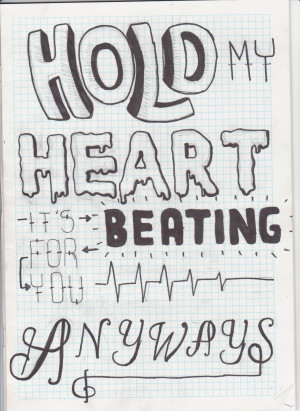 HOLD MY
HEART
IT'S BEATING
FOR
YOU
ANYWAYS